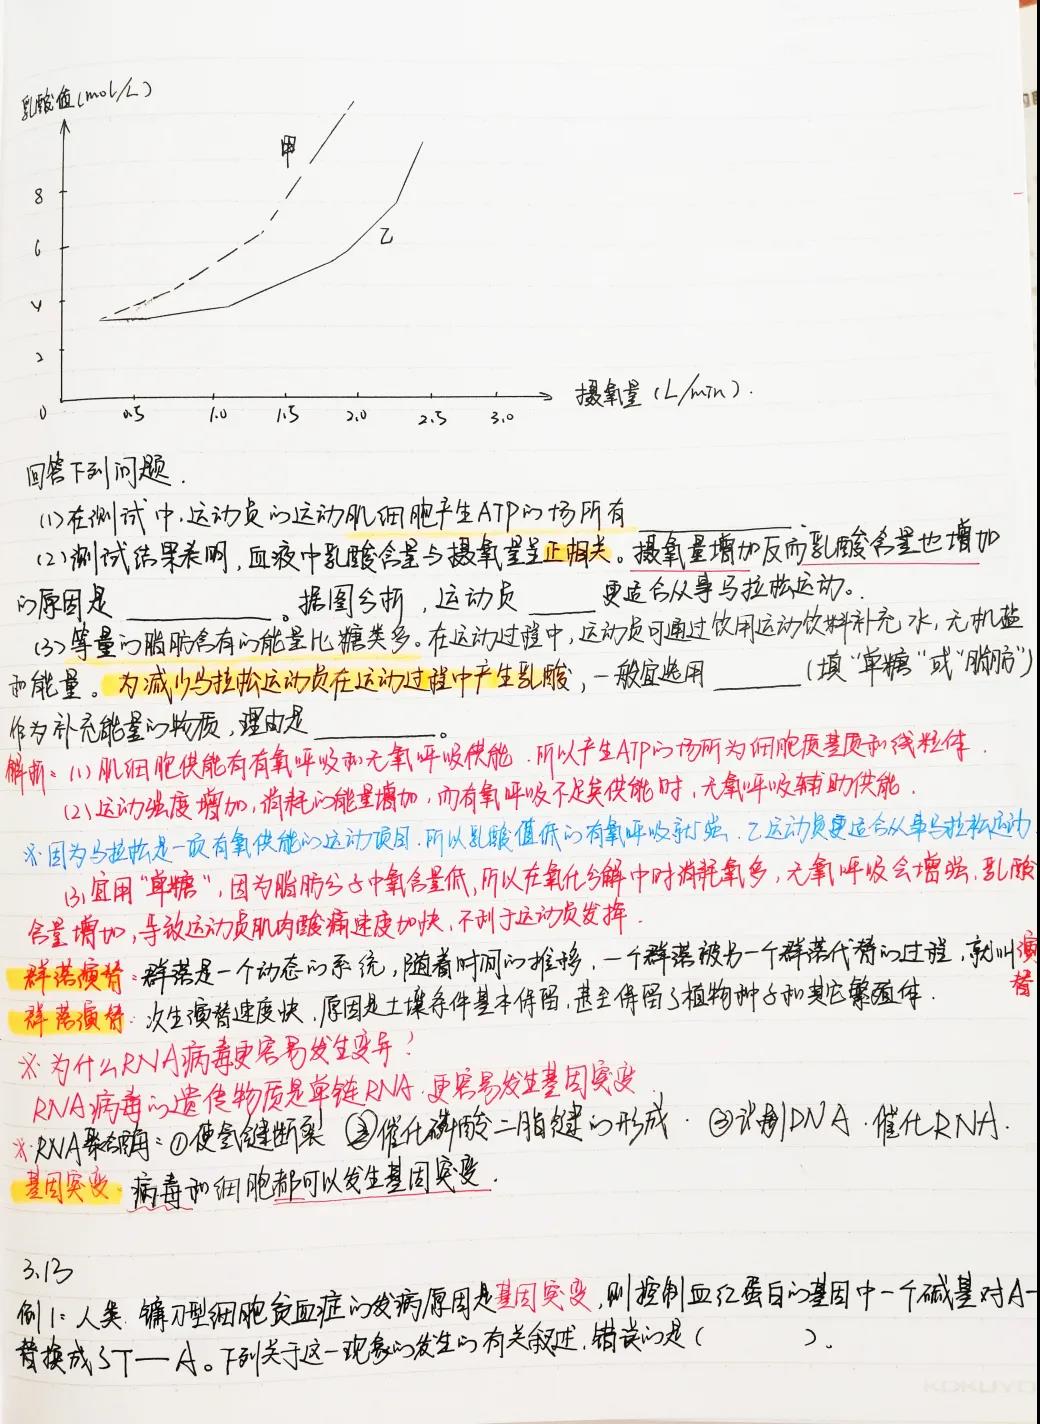 乳酸值(mol/L)
甲
8
6
乙
4
2
0
0.5
1.0
1.5
2.0
2.5
3.0
摄氧量(L/min).
回答下列问题.
(1)在测试中,运动员的运动肌细胞产生ATP的场所有
(2)测试结果表明,血液中乳酸含量与摄氧量呈正相关。摄氧量增加反而乳酸含量也增加
的原因是 。据图分析,运动员 更适合从事马拉松运动。
(3)等量的脂肪含有的能量比糖类多。在运动过程中,运动员可通过饮用运动饮料补充水,无机盐
和能量。为减少马拉松运动员在运动过程中产生乳酸,一般宜选用 (填“单糖”或“脂肪”)
作为补充能量的物质,理由是 。
解析:(1)肌细胞供能有有氧呼吸和无氧呼吸供能.所以产生ATP的场所为细胞质基质和线粒体.
(2)运动强度增加,消耗的能量增加,而有氧呼吸不足矣供能时,无氧呼吸辅助供能.
※因为马拉松是一项有氧供能的运动项目.所以乳酸值低的有氧呼吸就强.乙运动员更适合从事马拉松运动
(3)宜用“单糖”,因为脂肪分子中氧含量低,所以在氧化分解中时消耗氧多,无氧呼吸会增强,乳酸
含量增加,导致运动员肌肉酸痛速度加快,不利于运动员发挥.
群落演替:群落是一个动态的系统,随着时间的推移,一个群落被另一个群落代替的过程,就叫演替
群落演替.次生演替速度快,原因是土壤条件基本保留,甚至保留了植物种子和其它繁殖体.
※为什么RNA病毒更容易发生变异?
RNA病毒的遗传物质是单链RNA.更容易发生基因突变
※RNA聚合酶:①使氢键断裂 ②催化磷酸二脂键的形成.③识别DNA.催化RNA.
基因突变.病毒和细胞都可以发生基因突变.
3.13
例1:人类镰刀型细胞贫血症的发病原因是基因突变,则控制血红蛋白的基因中一个碱基对A-
替换成了T—A。下列关于这一现象的发生的有关叙述,错误的是( ).
KOKUYO